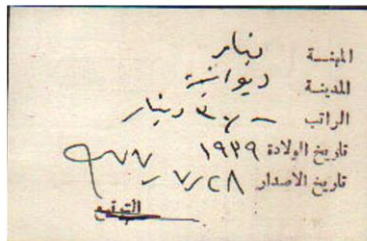 المهنة بنار
المدينة ديوانية
الراتب ‎-/٣٠ دينار
تاريخ الولادة ١٩٣٩
تاريخ الاصدار ٢٨/٧/٩٧٧
التوقيع